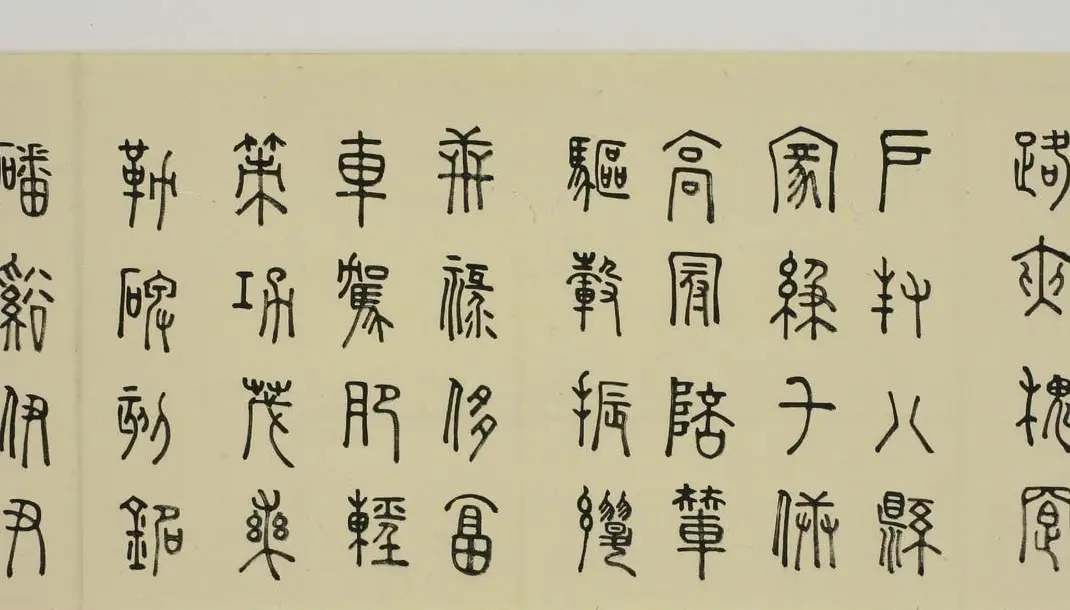 路夾槐卿
戶封八縣
家給千兵
高冠陪輦
驅轂振纓
世祿侈富
車駕肥輕
策功茂實
勒碑刻銘
磻谿伊尹